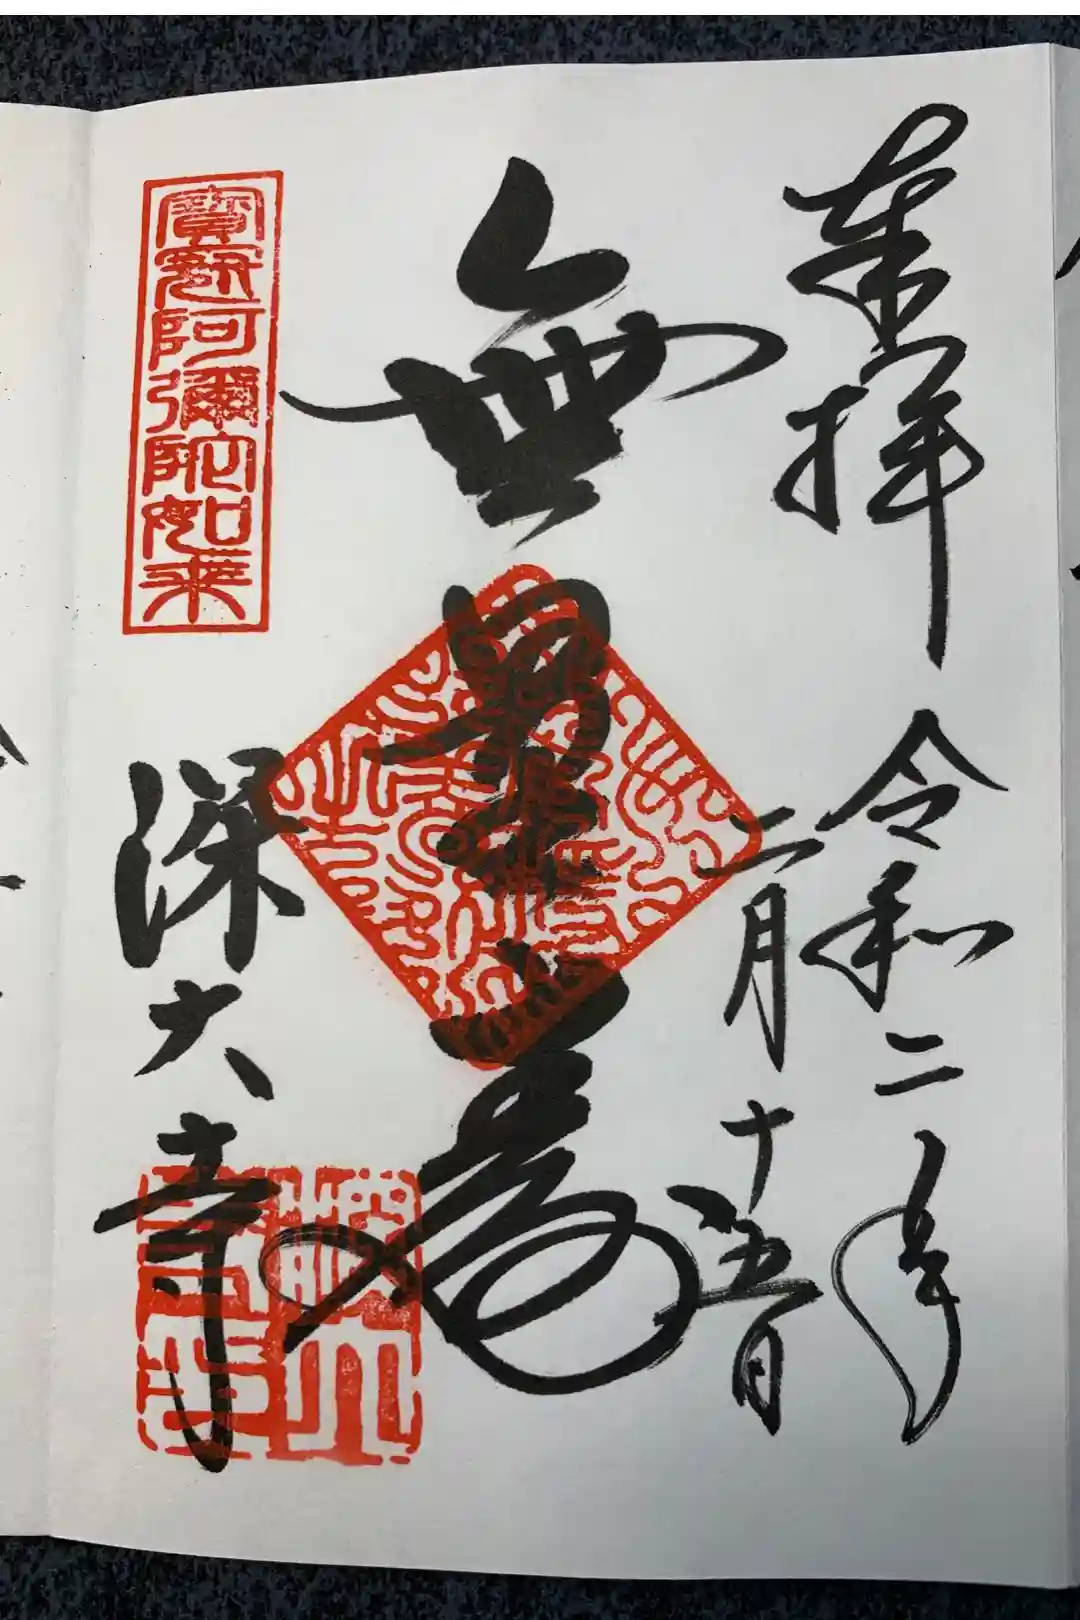 奉拝 令和二年
二月十五日
無量寿
寶冠阿彌陀如来
深大寺
深大
寺印